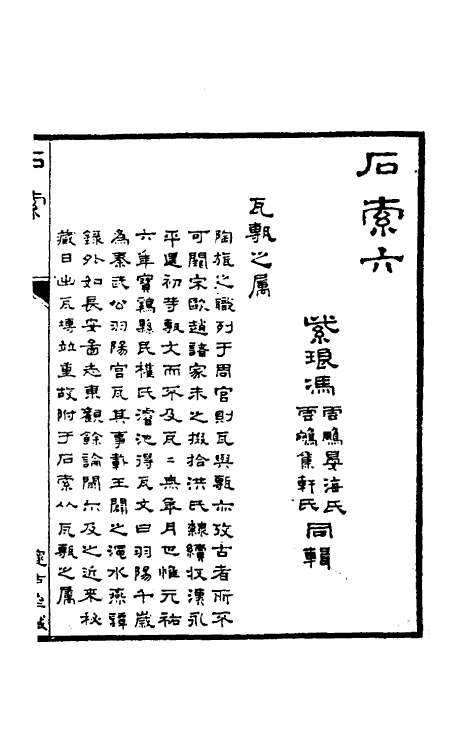 石索六
紫琅馮
雲鵬晏海氏
雲鵷集軒氏
同輯
瓦甎之属
陶旊之職列于周官則瓦與甎亦攷古者所不
可闕宋歐趙諸家未之掇拾洪氏隸續收漢永
平建初等甎文而不及瓦瓦無年月也惟元祐
六年寶鷄縣民權氏濬池得瓦文曰羽陽千歲
為秦武公羽陽宮瓦其事載王闢之澠水燕譚
錄外如長安圖志東觀餘論閒亦及之近來秘
藏日出瓦塼竝重故附于石索以瓦甎之属
石索